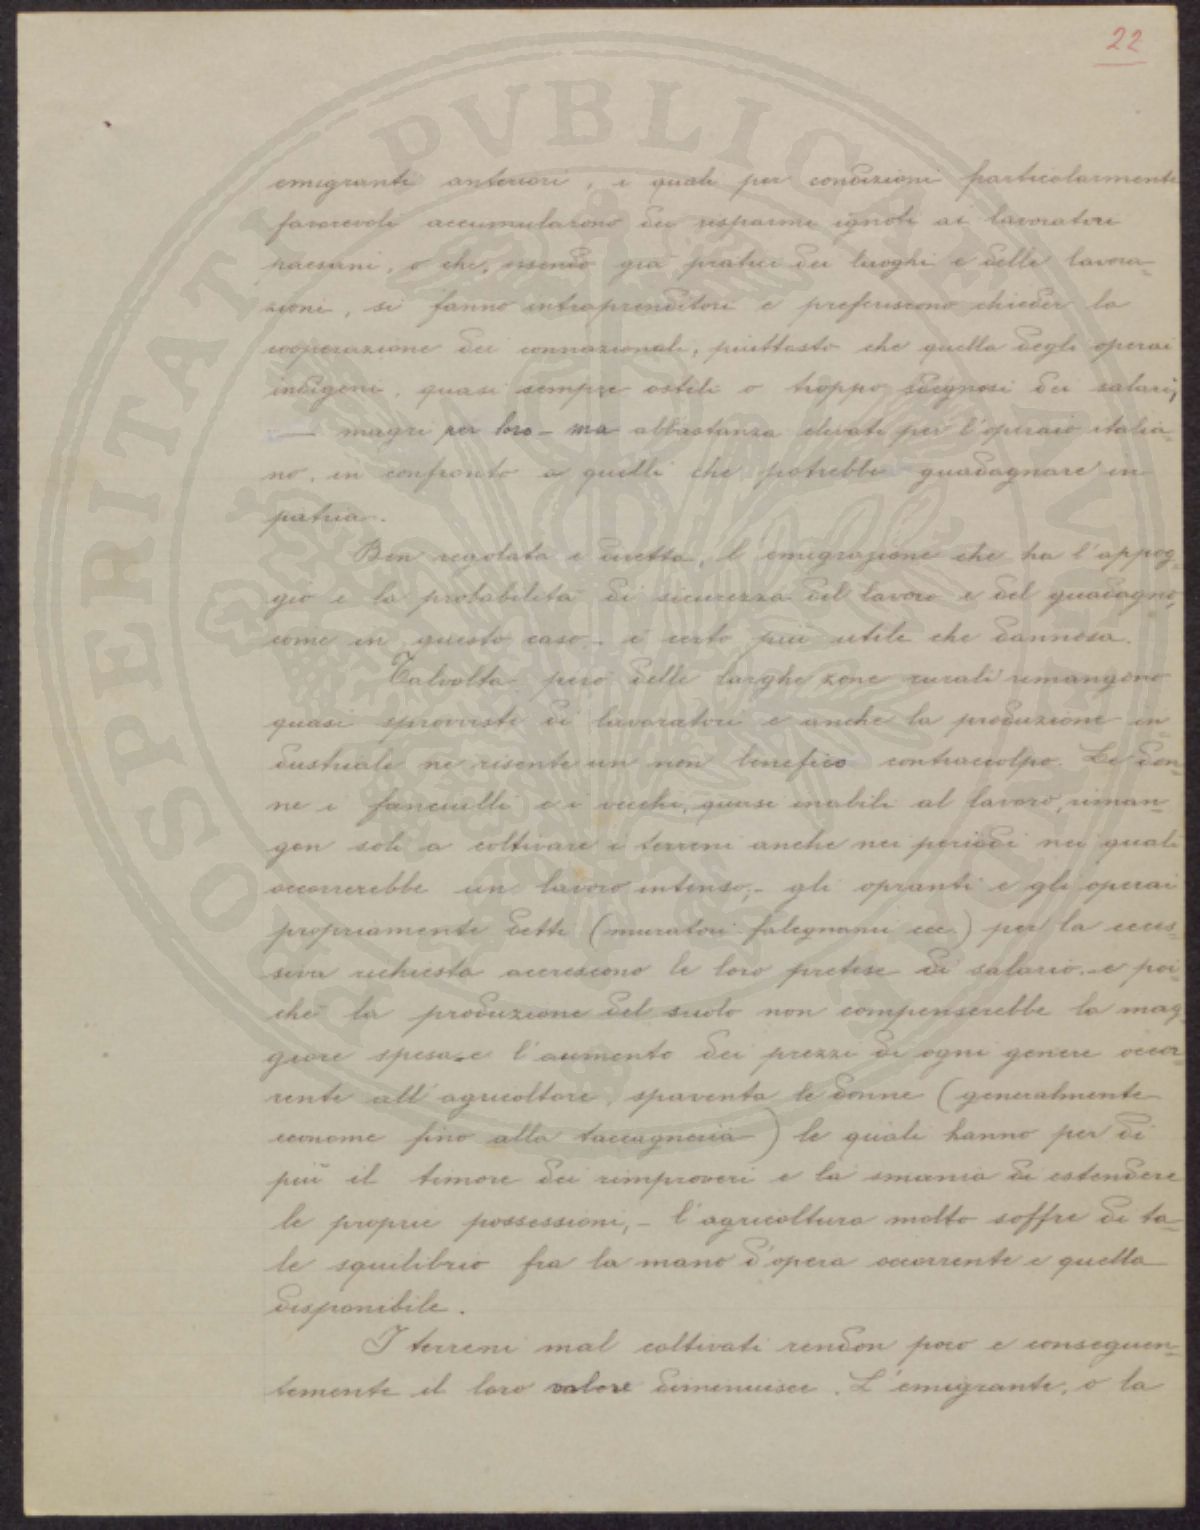 22
emigranti anteriori, i quali per condizioni particolarmente
favorevoli accumularono dei risparmi ignoti ai lavoratori
paesani, o che, essendo già pratici dei luoghi e delle lavora-
zioni, si fanno intraprenditori e preferiscono chieder la
cooperazione dei connazionali, piuttosto che quella degli operai
indigeni, quasi sempre ostili o troppo sdegnosi dei salari,
— magri per loro - ma abbastanza elevati per l'operaio italia-
no, in confronto a quelli che potrebbe guadagnare in
patria.
Ben regolata e diretta, l'emigrazione che ha l'appog-
gio e la probabilità di sicurezza del lavoro e del guadagno,
come in questo caso, è certo più utile che dannosa.
Talvolta però delle larghe zone rurali rimangono
quasi sprovviste di lavoratori e anche la produzione in-
dustriale ne risente un non benefico contraccolpo. Le don-
ne i fanciulli e i vecchi, quasi inabili al lavoro, riman-
gon soli a coltivare i terreni anche nei periodi nei quali
occorrerebbe un lavoro intenso; - gli opranti e gli operai
propriamente detti (muratori falegnami ecc.) per la ecces-
siva richiesta accrescono le loro pretese di salario. - e poi-
chè la produzione del suolo non compenserebbe la mag-
giore spesa - e l'aumento dei prezzi di ogni genere occor-
rente all'agricoltore, spaventa le donne (generalmente
econome fino alla taccagneria) le quali hanno per di
più il timore dei rimproveri e la smania di estendere
le proprie possessioni, - l'agricoltura molto soffre di ta-
le squilibrio fra la mano d'opera occorrente e quella
disponibile.
I terreni mal coltivati rendon poco e conseguen-
temente il loro valore diminuisce. L'emigrante, o la
PROSPERITATI PVBLICAE